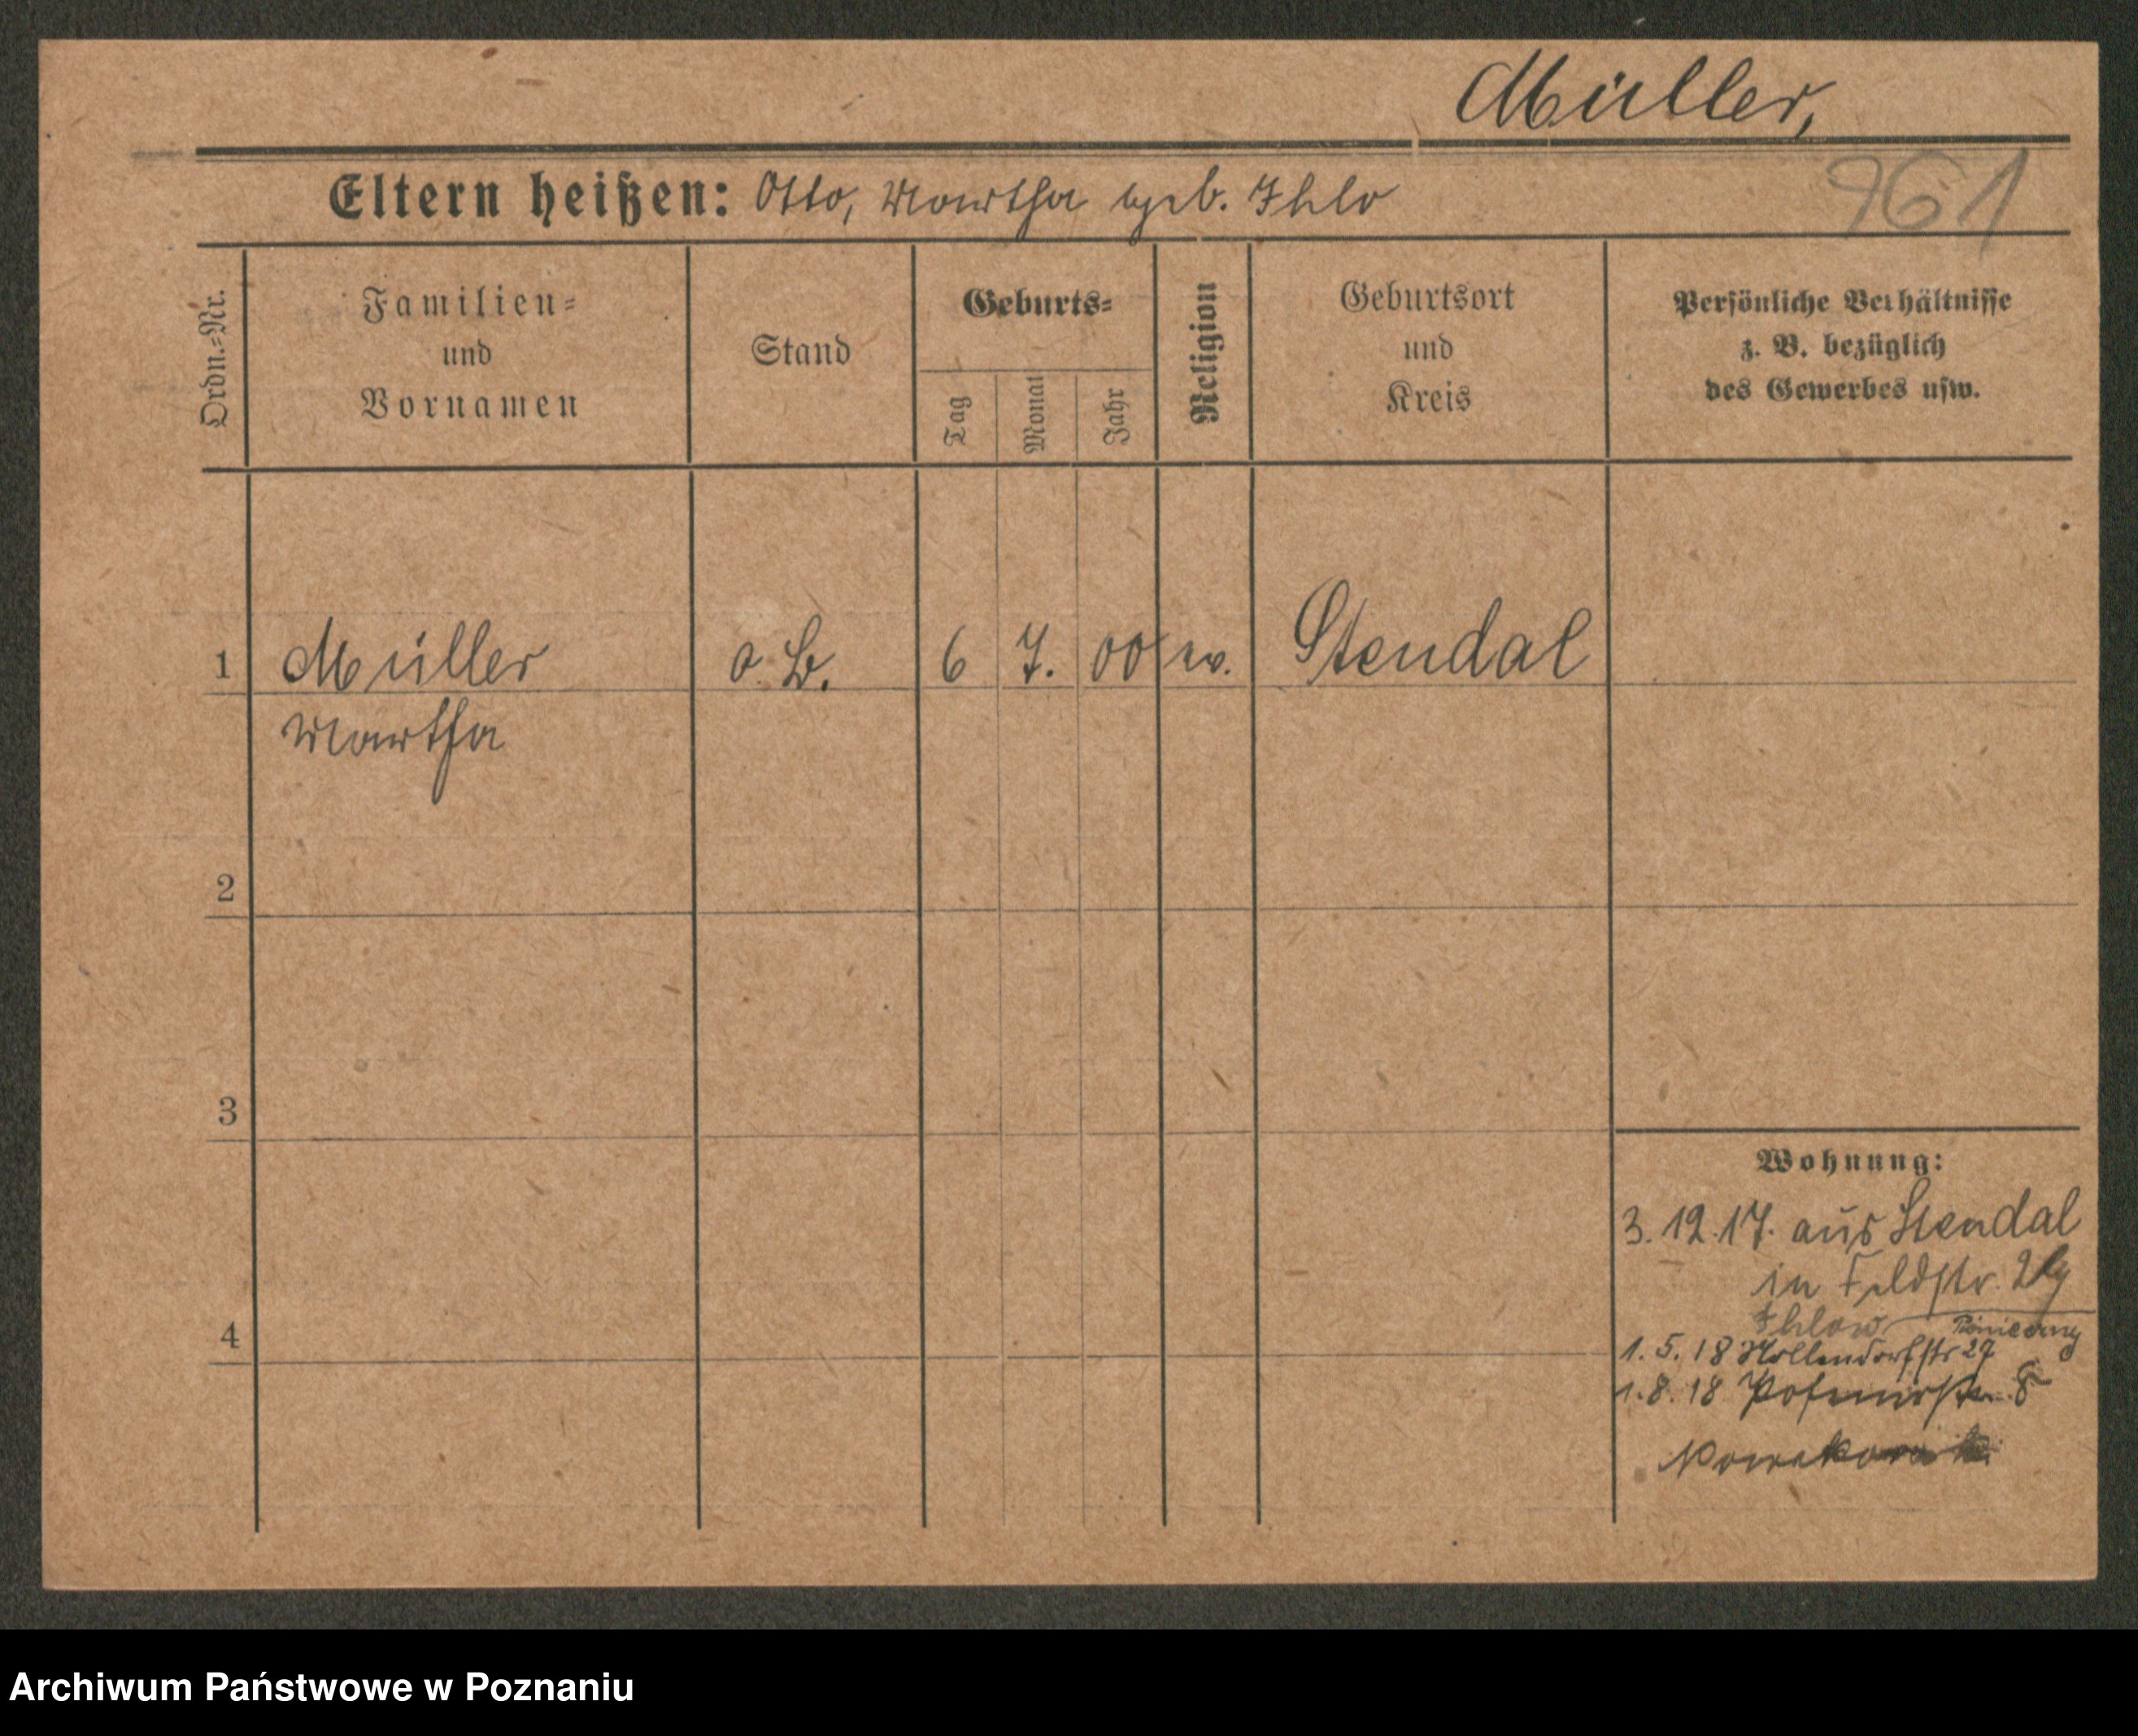 Müller,
961
Eltern heißen: Otto, Martha geb. Ihlo
Ordn.-Nr.
Familien-
und
Vornamen
Stand
Geburts-
Tag
Monat
Jahr
Religion
Geburtsort
und
Kreis
Persönliche Verhältnisse
z. B. bezüglich
des Gewerbes usw.
1 Müller o. B. 6 7. 00 ev. Stendal
Martha
2
3
Wohnung:
3.12.17. aus Stendal
in Feldstr.
Ihlow
4
1.5.18 Nollendorfstr 27
1.8.18 8
Archiwum Państwowe w Poznaniu